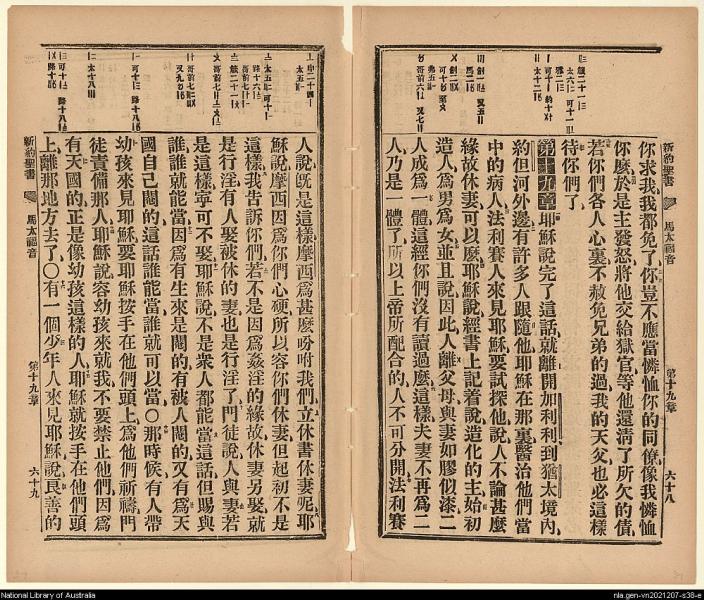 新約聖書
馬太福音
第十九章
六十八
你求我我都免了你豈不應當憐恤你的同僚像我憐恤
你麽於是主發怒將他交給獄官等他還清了所欠的債
若你們各人心裏不赦免兄弟的過我的天父也必這樣
待你們了
第十九章耶穌說完了這話就離開加利利到猶太境內
約但河外邊有許多人跟隨他耶穌在那裏醫治他們當
中的病人法利賽人來見耶穌要試探他說人不論甚麽
緣故休妻可以麽耶穌說經書上記着說造化的主始初
造人爲男爲女並且說因此人離父母與妻如膠似漆二
人成爲一體這經你們沒有讀過麽這樣夫妻不再爲二
人乃是一體了所以上帝所配合的人不可分開法利賽
人說旣是這樣摩西爲甚麽吩咐我們立休書休妻呢耶
穌說摩西因爲你們心硬所以容你們休妻但起初不是
這樣我告訴你們若不是因爲姦淫的緣故休妻另娶就
是行淫有人娶被休的妻也是行淫了門徒說人與妻若
是這樣寧可不娶耶穌說不是衆人都能當這話但賜與
誰誰就能當因爲有生來是閹的有被人閹的又有爲天
國自己閹的這話誰能當誰就可以當○那時候有人帶
幼孩來見耶穌要耶穌按手在他們頭上爲他們祈禱門
徒責備那人耶穌說容幼孩來就我不要禁止他們因爲
有天國的正是像幼孩這樣的人耶穌就按手在他們頭
上離那地方去了○有一個少年人來見耶穌說良善的
新約聖書
馬太福音
第十九章
六十九
National Library of Australia
nla.gen-vn2021207-s38-e